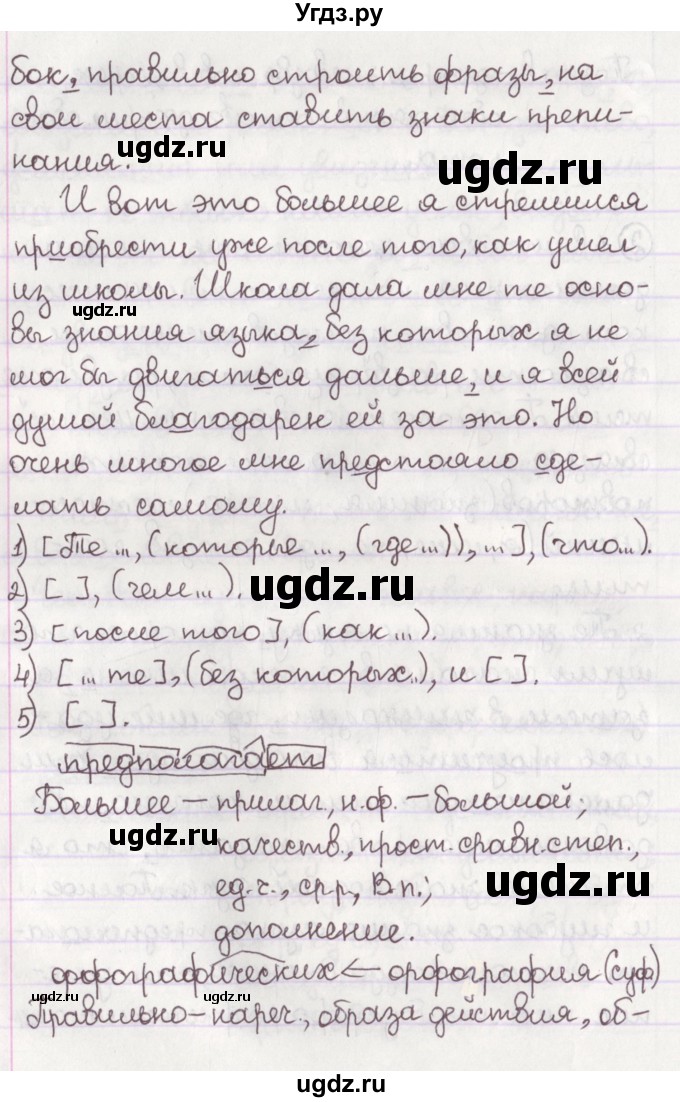 Угдз.ру
бок, правильно строить фразы, на
свои места ставить знаки препи-
нания.
ugdz.ru
ugdz.ru
И вот это большее я стремился
приобрести уже после того, как ушел
из школы. Школа дала мне те осно-
ugdz.ru
вы знания языка, без которых я не
мог бы двигаться дальше, и я всей
душой благодарен ей за это. Но
очень многое мне предстояло сде-
лать самому.
1) [Те ..., (которые ..., (где ...)), ...], (что...).
2) [ ], (чем ... ).
ugdz.ru
3) [после того], (как ...).
4) [... те], (без которых..), и [ ].
5) [ ].
предполагает
Большее – прилаг, н.ф. – большой;
ugdz.ru
качеств., прост. сравн.степ.,
ед.ч., ср.р, В.п.;
ugdz.ru
дополнение.
орфографических ← орфография (суф)
ugdz.ru
ugdz.ru
Правильно – нареч., образа действия, об-
ugdz.ru